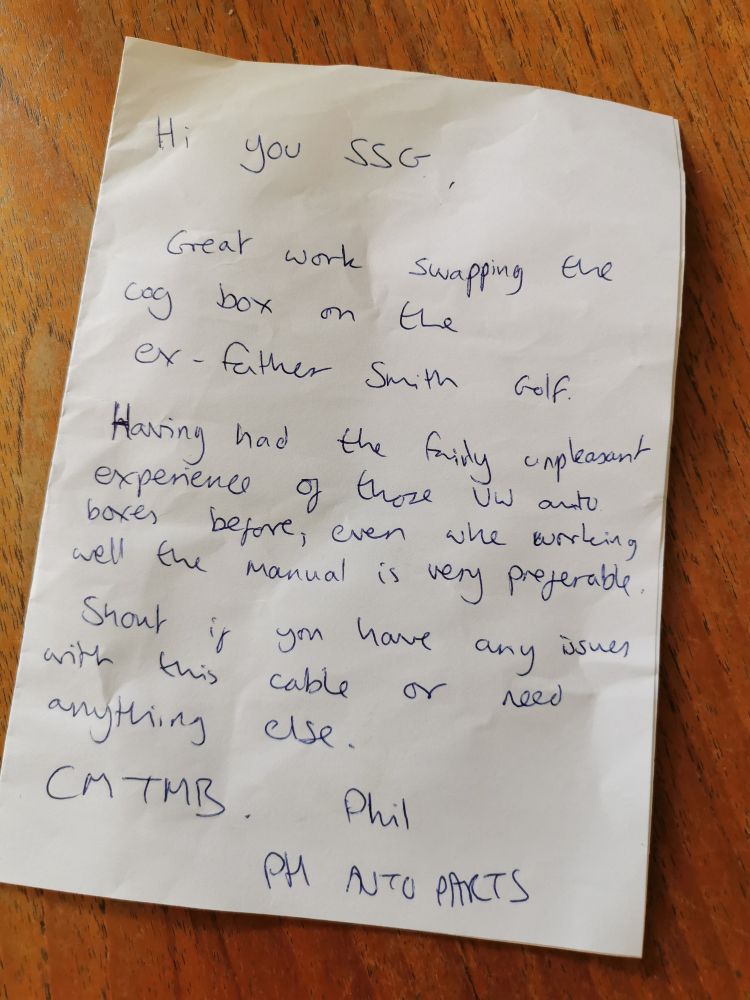 Hi you SSG,
Great work swapping the
cog box on the
ex-father Smith Golf.
Having had the fairly unpleasant
experience of those VW auto
boxes before, even whe working
well the manual is very preferable.
Shout if you have any issues
with this cable or need
anything else.
CMTMB. Phil
PH AUTO PARTS